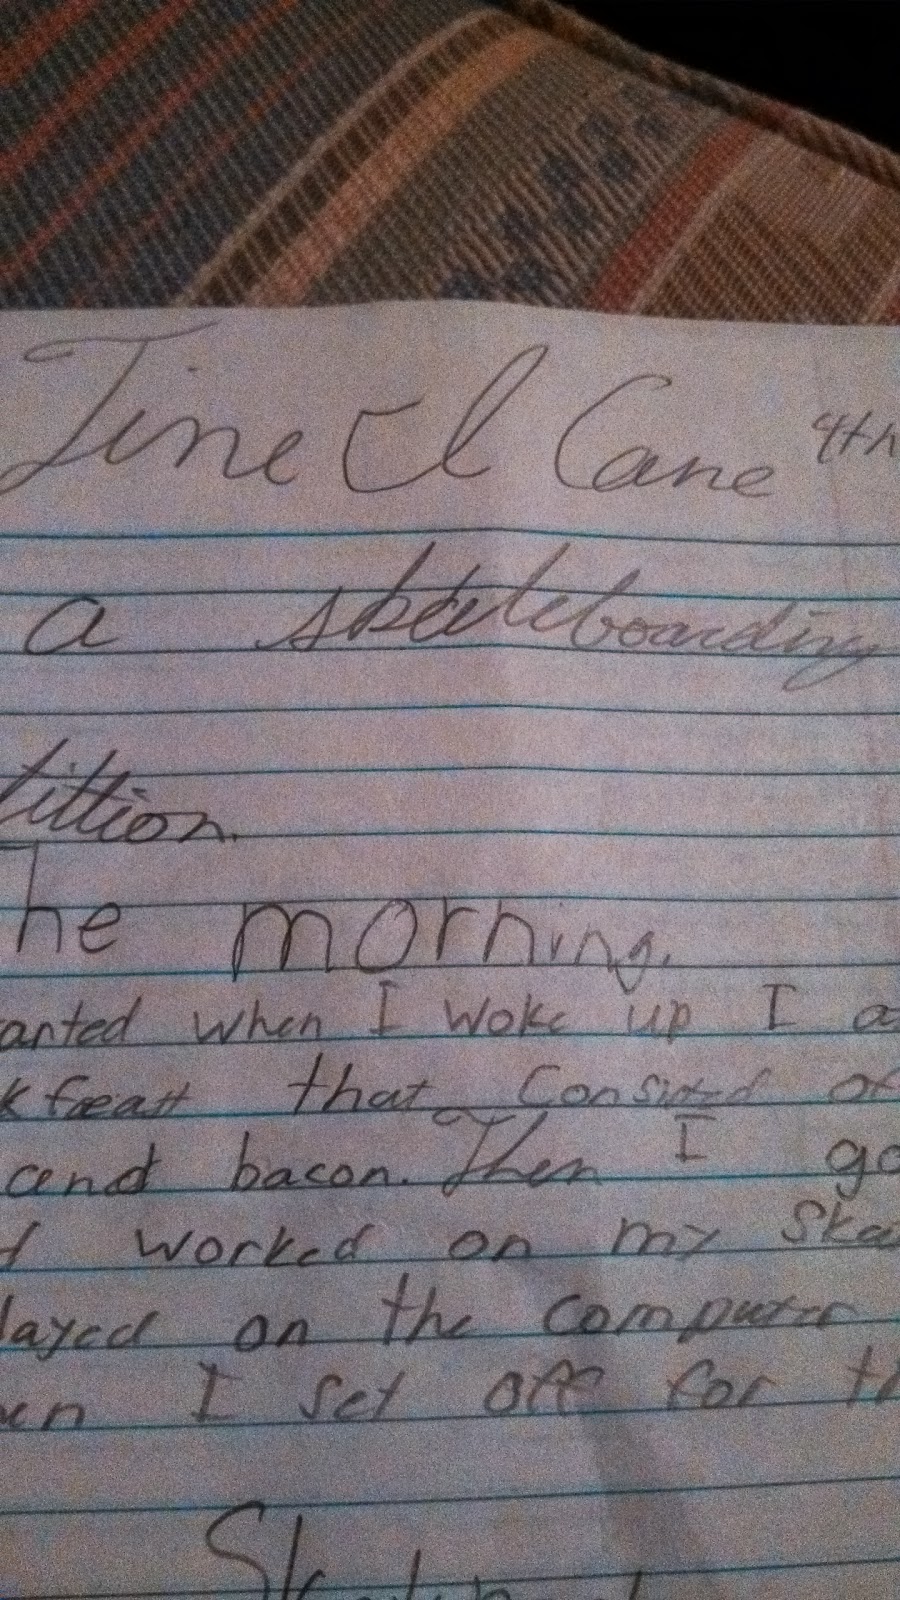 Jine El Cane 4th
a skateboarding
tittion.
he morning.
arted when I woke up I a
kfeast that Consisted of
and bacon. Then I go
d worked on my Ska
layed on the computer
en I set off for th